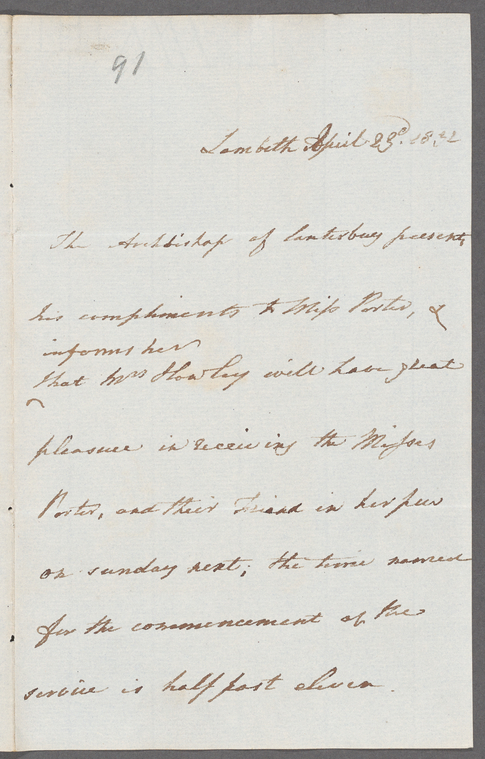 91
Lambeth April 23d.
The Archbishop of Canterbury presents
his compliments to Miss Porter, &
informs her
that Mrs Howley will have great
pleasure in receiving the Misses
Porter, and their Friend in her pew
on sunday next; the time named
for the commencement of the
service is half past eleven.